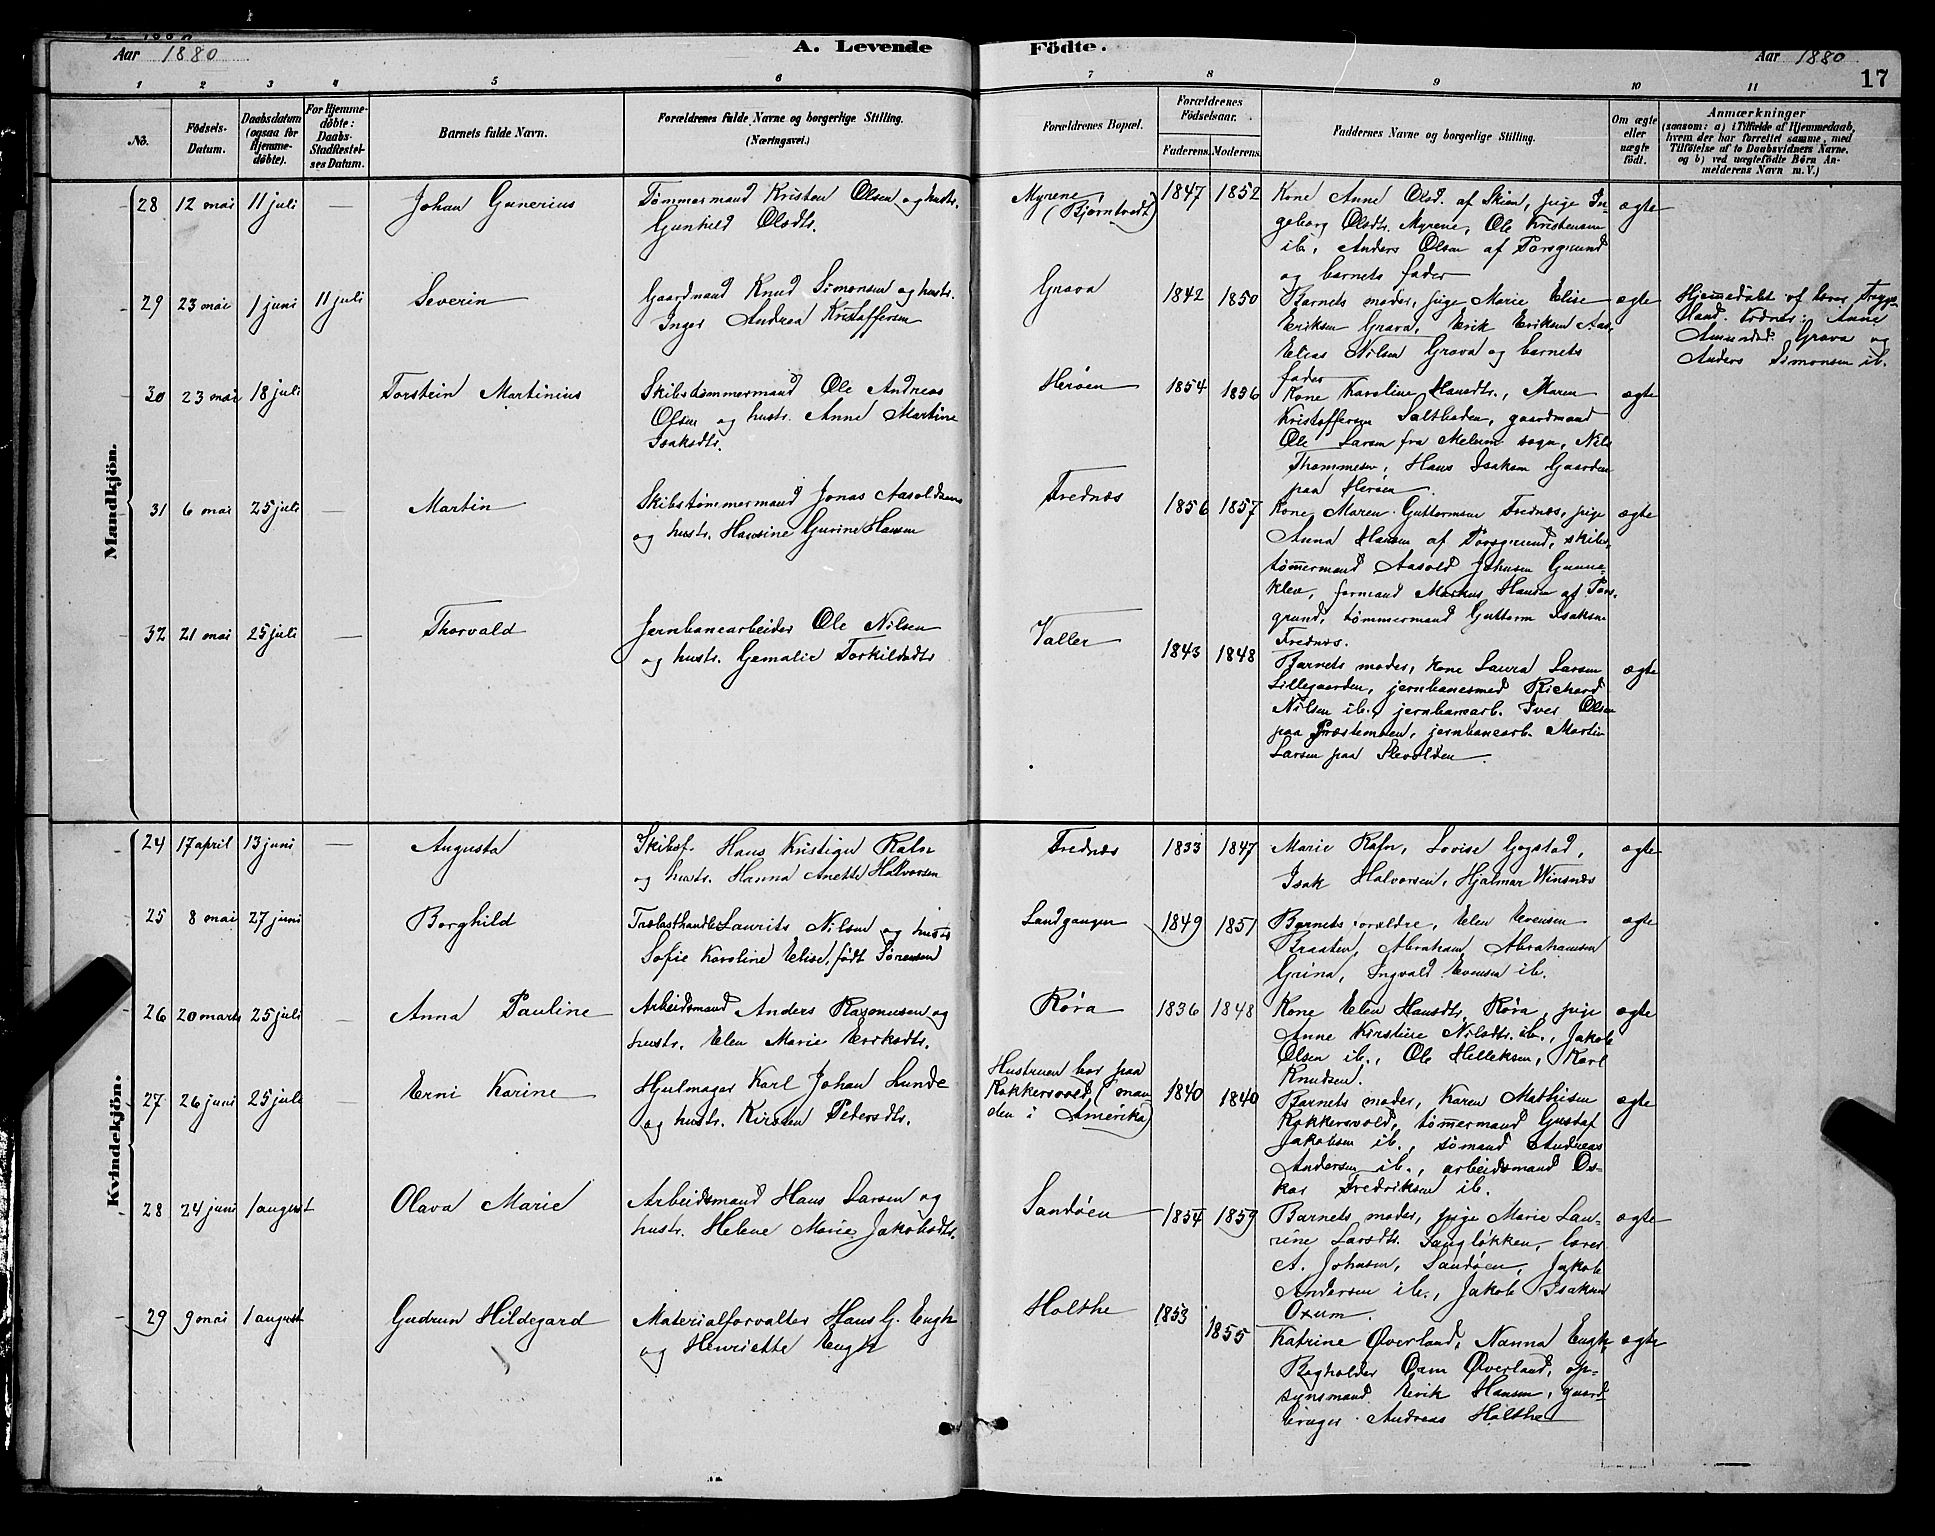 Aar 1880
A. Levende
Födte.
Aar 1880
17
1 2 3 4 5 6 7 8 9 10 11
No.
Födsels-
Datum.
Daabsdatum
(ogsaa for
Hjemme-
döbte).
For Hjemme-
döbte:
Daabs-
Stadfæstel-
ses Datum.
Barnets fulde Navn.
Forældrenes fulde Navne og borgerlige Stilling.
(Næringsvei.)
Forældrenes Bopæl.
Forældrenes
Födselsaar.
Faderens. Moderens.
Faddernes Navne og borgerlige Stilling.
Om ægte
eller
uægte
födt.
Anmærkninger
(saasom: a) i Tilfælde af Hjemmedaab,
hvem der har forrettet samme, med
Tilföielse af to Daabsvidners Navne.
og b) ved uægtefödte Börn An-
melderens Navn m. V.)
Mandkjön.
28 12 mai 11 juli — Johan Gunerius
Tømmermand Kristen Olsen og hustr.
Gunhild Olsdtr.
Myrene
(Bjørntvedt)
1847 1852
Kone Anne Olsd. af Skien, pige In-
geborg Olsdtr. Myrene, Ole Kristensen
ib., Anders Olsen af Porsgrund
og barnets fader
ægte
29 23 mai 1 juni 11 juli Severin
Gaardmand Knud Simonsen og hustr.
Inger Andrea Kristoffersen
Grava
1842 1850
Barnets moder, pige Marie Elise
Eriksen Grava, Erik Eriksen Aas
Elias Nilsen Grava og barnets
fader
ægte
Hjemmedøbt af lærer
Anne
Amundsd. Grava og
Anders Simonsen ib.
30 23 mai 18 juli Torstein Martinius
Skibstømmermand Ole Andreas
Olsen og hustr. Anne Martine
Isaksdtr.
Herøen
1854 1856
Kone Karoline Hansdtr., Maren
Kristoffersen Saltboden, gaardmand
Ole Larsen fra Melum sogn, Nils
Thommesen, Hans Isaksen Gaarden
paa Herøen
ægte
31 6 mai 25 juli — Martin
Skibstømmermand Jonas Aasoldsen
og hustr. Hansine Gurine Hansen
Frednæs
1856 1857
Kone Maren Guttormsen Frednæs, pige
Anna Hansen af Porsgrund, skibs-
tømmermand Aasold Johnsen Gunne-
klev, formand Markus Hansen af Pors-
grund, tømmermand Guttorm Isaksen
Frednæs.
ægte
32 21 mai 25 juli — Thorvald
Jernbanearbeider Ole Nilsen
og hustr. Gemalie Torkildsdtr
Valler
1843 1848
Barnets moder, kone Laura Larsen
Lillegaarden, jernbanesmed Richard
Nilsen ib., jernbanearb. Iver Olsen
paa Præstemoen, jernbanearb. Martin
Larsen paa
ægte
Kvindekjön.
24 17 april 13 juni — Augusta
Skibsf. Hans Kristian Rafn
og hustr. Hanna Anette Halvorsen
Frednæs
1833 1847
Marie Rafn, Lovise Gogstad,
Isak Halvorsen, Hjalmar Winsnæs
ægte
25 8 mai 27 juni Borghild
Trælasthandler Laurits Nilsen og hustr
Sofie Karoline Elise, født Sørensen
Landgangen
1849 1851
Barnets forældre, Elen Evensen
Braaten, Abraham Abrahamsen
Grina, Ingvald Evensen ib.
ægte
26 20 marts 25 juli — Anna Pauline
Arbeidsmand Anders Rasmusen og
hustr. Elen Marie Eriksdtr.
Røra
1836 1848
Kone Elen Hansdtr. Røra, pige
Anne Kirstine Nilsdtr. ib., Jakob
Olsen ib., Ole Helleksen, Karl
Knudsen.
ægte
27 26 juni 25 juli — Erni Karine
Hjulmager Karl Johan Lunde
og hustr. Kirsten Petersdtr.
Hustruen bor paa
Kokkersvold, (man-
den i Amerika)
1840 1840
Barnets moder, Karen Mathisen
Kokkersvold, tømmermand Gustaf
Jakobsen ib., sømand Andreas
Andersen ib., arbeidsmand Os-
kar Fredriksen ib.
ægte
28 24 juni 1 august Olava Marie
Arbeidsmand Hans Larsen og
hustr. Helene Marie Jakobsdtr.
Sandøen
1854 1859
Barnets moder, pige Marie Lau-
rine Larsdtr. Langløkken, lærer
A. Johnsen, Sandøen, Jakob
Andersen ib., Jakob Isaksen
Oxum.
ægte
29 9 mai 1 august Gudrun Hildegard
Materialforvalter Hans G. Engh
og Henriette Engh
Holthe
1853 1855
Katrine Øverland, Nanna Engh,
Bogholder Oxm Øverland, op-
synsmand Eirik Hansen, gaard-
bruger Andreas Holthe
ægte